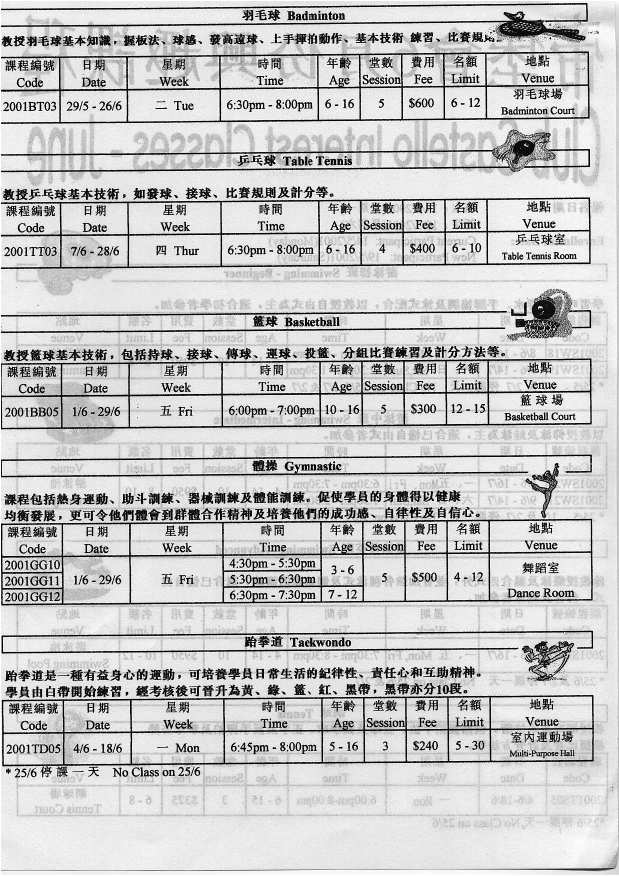 羽毛球 Badminton
教授羽毛球基本知識，握板法、球感、發高遠球、上手揮拍動作、基本技術 練習、比賽規則
課程編號 日期 星期 時間 年齡 堂數 費用 名額 地點
Code Date Week Time Age Session Fee Limit Venue
2001BT03 29/5 - 26/6 二 Tue 6:30pm - 8:00pm 6 - 16 5 $600 6 - 12 羽毛球場
Badminton Court
乒乓球 Table Tennis
教授乒乓球基本技術，如發球、接球、比賽規則及計分等。
課程編號 日期 星期 時間 年齡 堂數 費用 名額 地點
Code Date Week Time Age Session Fee Limit Venue
2001TT03 7/6 - 28/6 四 Thur 6:30pm - 8:00pm 6 - 16 4 $400 6 - 10 乒乓球室
Table Tennis Room
籃球 Basketball
教授籃球基本技術，包括持球、接球、傳球、運球、投籃、分組比賽練習及計分方法等。
課程編號 日期 星期 時間 年齡 堂數 費用 名額 地點
Code Date Week Time Age Session Fee Limit Venue
2001BB05 1/6 - 29/6 五 Fri 6:00pm - 7:00pm 10 - 16 5 $300 12 - 15 籃球場
Basketball Court
體操 Gymnastic
課程包括熱身運動、助斗訓練、器械訓練及體能訓練。促使學員的身體得以健康
均衡發展，更可令他們體會到群體合作精神及培養他們的成功感、自律性及自信心。
課程編號 日期 星期 時間 年齡 堂數 費用 名額 地點
Code Date Week Time Age Session Fee Limit Venue
2001GG10 4:30pm - 5:30pm 3 - 6 舞蹈室
2001GG11 1/6 - 29/6 五 Fri 5:30pm - 6:30pm 5 $500 4 - 12
2001GG12 6:30pm - 7:30pm 7 - 12 Dance Room
跆拳道 Taekwondo
跆拳道是一種有益身心的運動，可培養學員日常生活的紀律性、責任心和互助精神。
學員由白帶開始練習，經考核後可晉升為黃、綠、籃、紅、黑帶，黑帶亦分10段。
課程編號 日期 星期 時間 年齡 堂數 費用 名額 地點
Code Date Week Time Age Session Fee Limit Venue
2001TD05 4/6 - 18/6 一 Mon 6:45pm - 8:00pm 5 - 16 3 $240 5 - 30 室內運動場
Multi-Purpose Hall
* 25/6 停 課 一 天 No Class on 25/6